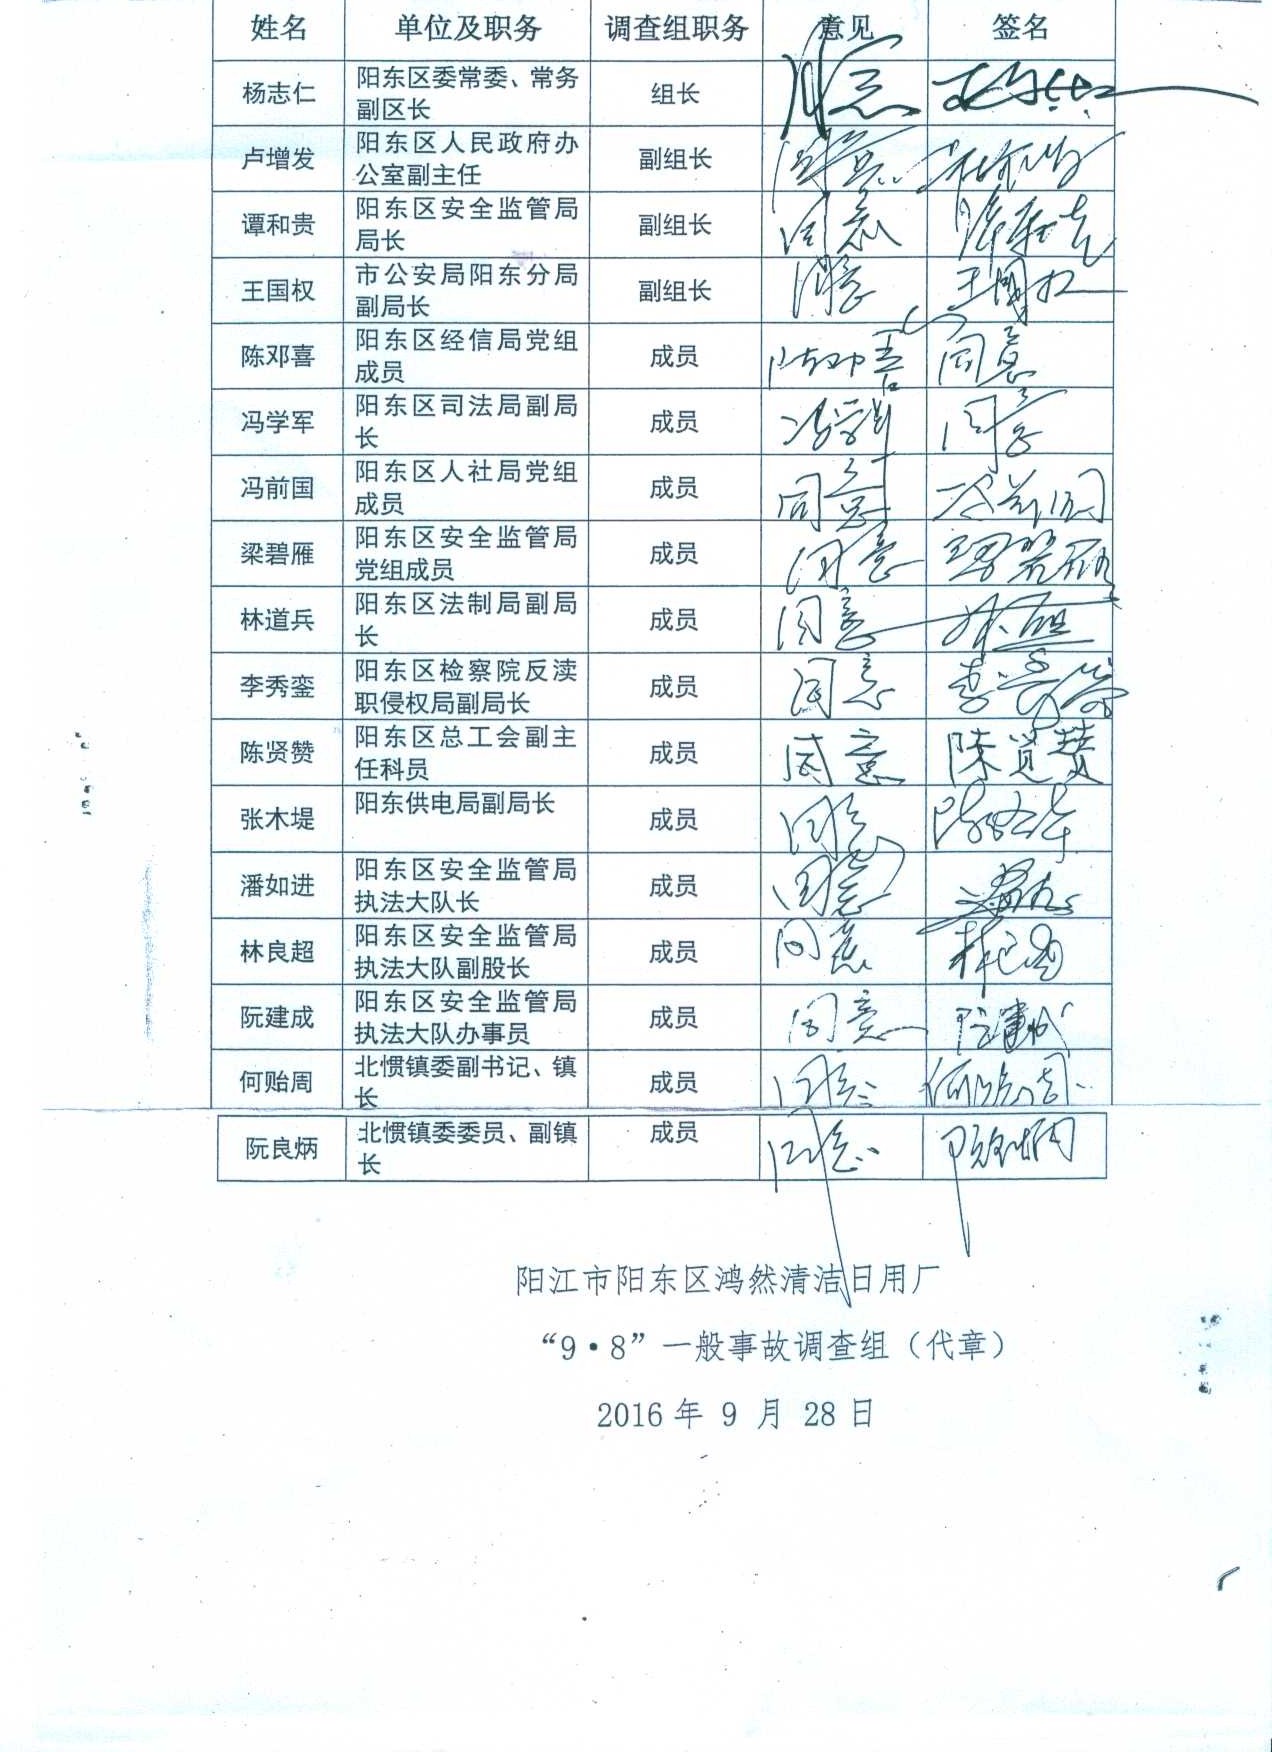 姓名 单位及职务 调查组职务 意见 签名
杨志仁 阳东区委常委、常务 组长 同意
副区长
卢增发 阳东区人民政府办 副组长 同意
公室副主任
谭和贵 阳东区安全监管局 副组长 同意 谭和贵
局长
王国权 市公安局阳东分局 副组长 同意 王國权
副局长
陈邓喜 阳东区经信局党组 成员 陈邓喜 同意
成员
冯学军 阳东区司法局副局 成员 冯学军 同意
长
冯前国 阳东区人社局党组 成员 同意 冯前国
成员
梁碧雁 阳东区安全监管局 成员 同意 梁碧雁
党组成员
林道兵 阳东区法制局副局 成员 同意
长
李秀銮 阳东区检察院反渎 成员 同意 李秀銮
职侵权局副局长
陈贤赞 阳东区总工会副主 成员 同意 陈贤赞
任科员
张木堤 阳东供电局副局长 成员 同意
潘如进 阳东区安全监管局 成员 同意
执法大队长
林良超 阳东区安全监管局 成员 同意 林良超
执法大队副股长
阮建成 阳东区安全监管局 成员 同意 阮建成
执法大队办事员
何贻周 北惯镇委副书记、镇 成员 同意 何贻周
长
阮良炳 北惯镇委委员、副镇 成员 同意 阮良炳
长
阳江市阳东区鸿然清洁日用厂
“9·8”一般事故调查组（代章）
2016年 9 月 28日